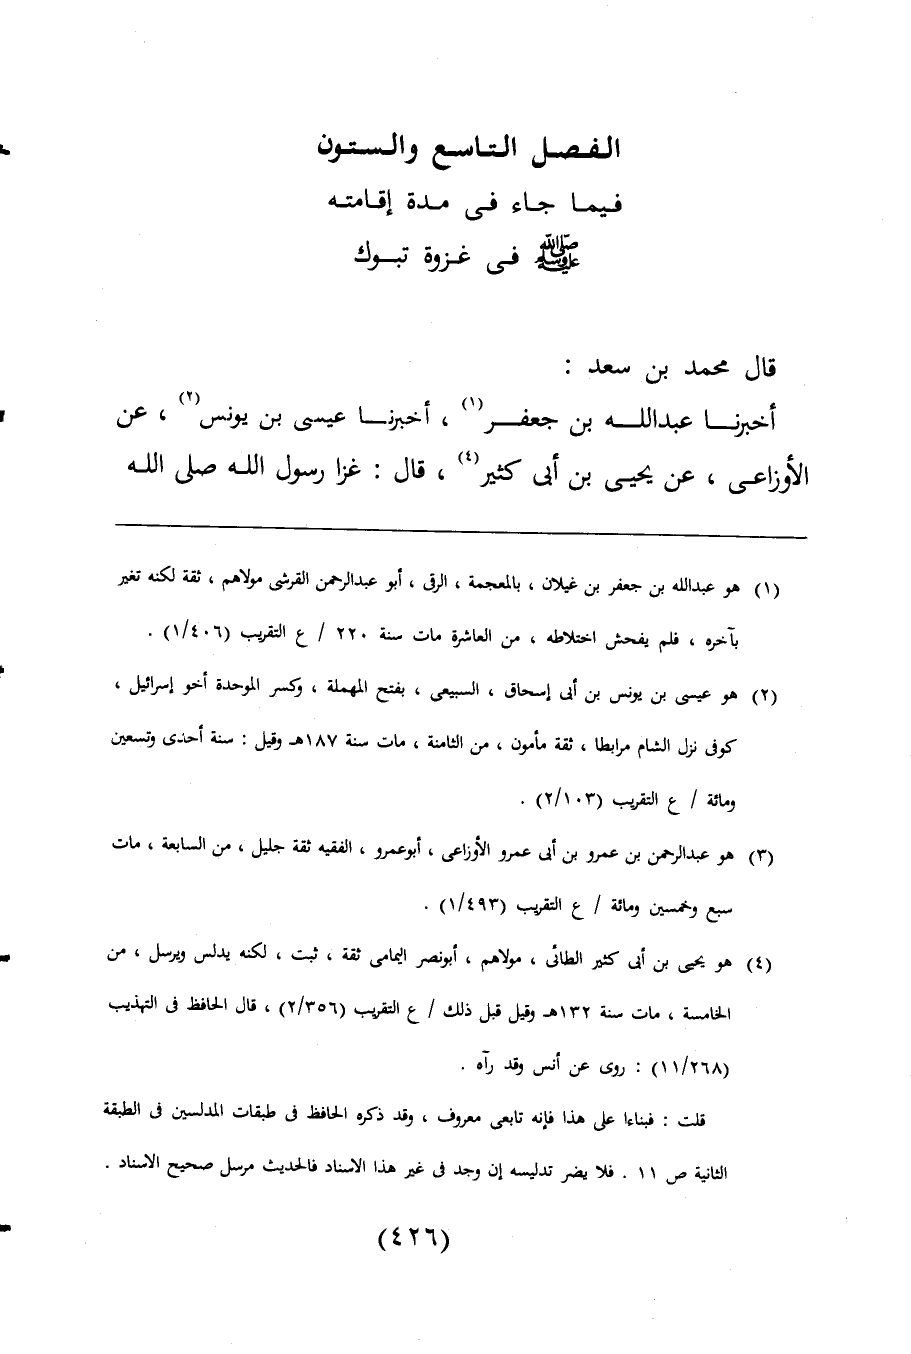 الفصل التاسع والستون
فيما جاء فى مدة إقامته
ﷺ فى غزوة تبوك
قال محمد بن سعد :
أخبرنا عبدالله بن جعفر(١) ، أخبرنا عيسى بن يونس(٢) ، عن
الأوزاعى ، عن يحيى بن أبى كثير(٤) ، قال : غزا رسول الله صلى الله
(١) هو عبدالله بن جعفر بن غيلان ، بالمعجمة ، الرقى ، أبو عبدالرحمن القرشى مولاهم ، ثقة لكنه تغير
بآخره ، فلم يفحش اختلاطه ، من العاشرة مات سنة ٢٢٠ / ع التقريب (١/٤٠٦) .
(٢) هو عيسى بن يونس بن أبى إسحاق ، السبيعى ، بفتح المهملة ، وكسر الموحدة أخو إسرائيل ،
كوفى نزل الشام مرابطا ، ثقة مأمون ، من الثامنة ، مات سنة ١٨٧هـ وقيل : سنة أحدى وتسعين
ومائة / ع التقريب (٢/١٠٣) .
(٣) هو عبدالرحمن بن عمرو بن أبى عمرو الأوزاعى ، أبوعمرو ، الفقيه ثقة جليل ، من السابعة ، مات
سبع وخمسين ومائة / ع التقريب (١/٤٩٣) .
(٤) هو يحيى بن أبى كثير الطائى ، مولاهم ، أبونصر اليمامى ثقة ، ثبت ، لكنه يدلس ويرسل ، من
الخامسة ، مات سنة ١٣٢هـ وقيل قبل ذلك / ع التقريب (٢/٣٥٦) ، قال الحافظ فى التهذيب
(١١/٢٦٨) : روى عن أنس وقد رآه .
قلت : فبناءا على هذا فإنه تابعى معروف ، وقد ذكره الحافظ فى طبقات المدلسين فى الطبقة
الثانية ص ١١ . فلا يضر تدليسه إن وجد فى غير هذا الاسناد فالحديث مرسل صحيح الاسناد .
(٤٢٦)